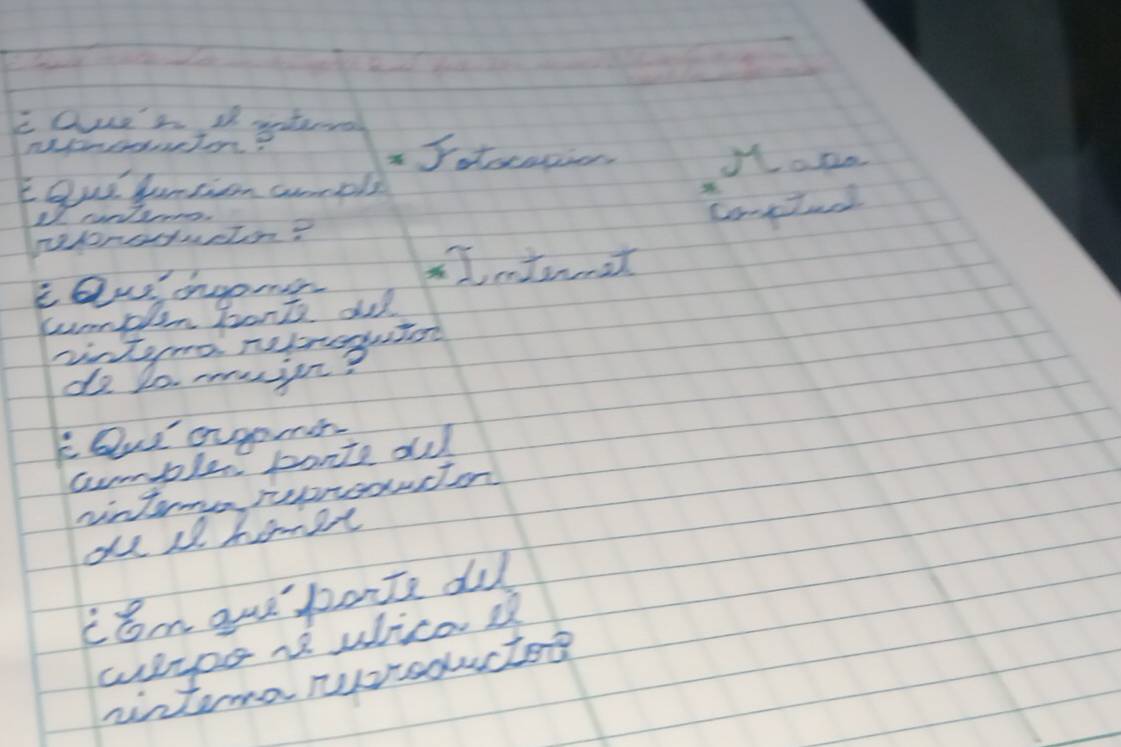 ¿Qué es el sistema
reproductor?
¿Qué funsion cumple
el sistema
reproductor?
* Fotocopias
* Mapa
conceptual
* Internet
¿Qué órganos
cumplen parte del
sistema reproductor
de la mujer?
¿Qué organos
cumplen parte del
sistema reproductor
de el hombre
¿En qué parte del
cuerpo se ubica el
sistema reproductor?